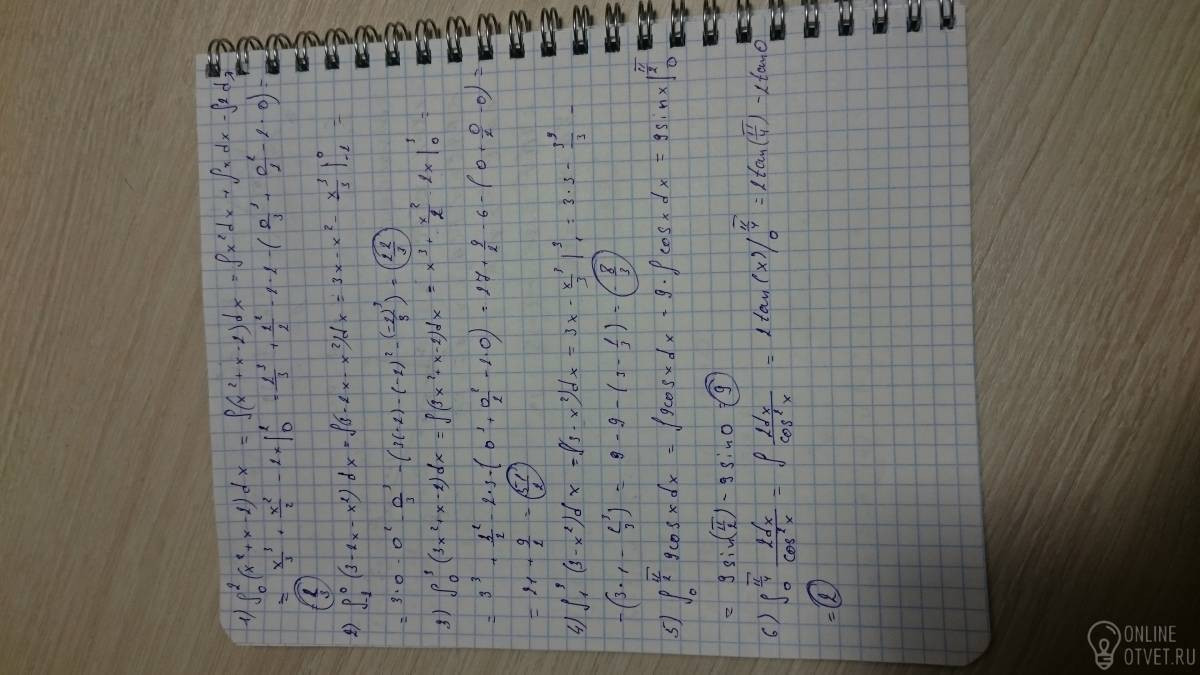 1) ∫₀² (x²+x-2)dx = ∫(x²+x-2)dx = ∫x²dx + ∫xdx - ∫2dx
= x³/3 + x²/2 - 2x |₀² = 2³/3 + 2²/2 - 2·2 - (0³/3 + 0²/2 - 2·0) =
2/3
2) ∫₋₂⁰ (3-2x-x²)dx = ∫(3-2x-x²)dx = 3x - x² - x³/3 |₋₂⁰ =
= 3·0 - 0² - 0³/3 - (3(-2) - (-2)² - (-2)³/3) = 22/3
3) ∫₀³ (3x²+x-2)dx = ∫(3x²+x-2)dx = x³ + x²/2 - 2x |₀³ =
= 3³ + 3²/2 - 2·3 - (0³ + 0²/2 - 2·0) = 27 + 9/2 - 6 - (0 + 0/2 - 0) =
= 21 + 9/2 = 51/2
4) ∫₁³ (3-x²)dx = ∫(3-x²)dx = 3x - x³/3 |₁³ = 3·3 - 3³/3 -
- (3·1 - 1³/3) = 9 - 9 - (3 - 1/3) = 8/3
5) ∫₀^π/2 9cosxdx = ∫9cosxdx = 9·∫cosxdx = 9sinx |₀^π/2
= 9sin(π/2) - 9sin0 = 9
6) ∫₀^π/4 2dx/cos²x = ∫ 2dx/cos²x = 2tan(x) |₀^π/4 = 2tan(π/4) - 2tan0
= 2
ONLINE
OTVET.RU